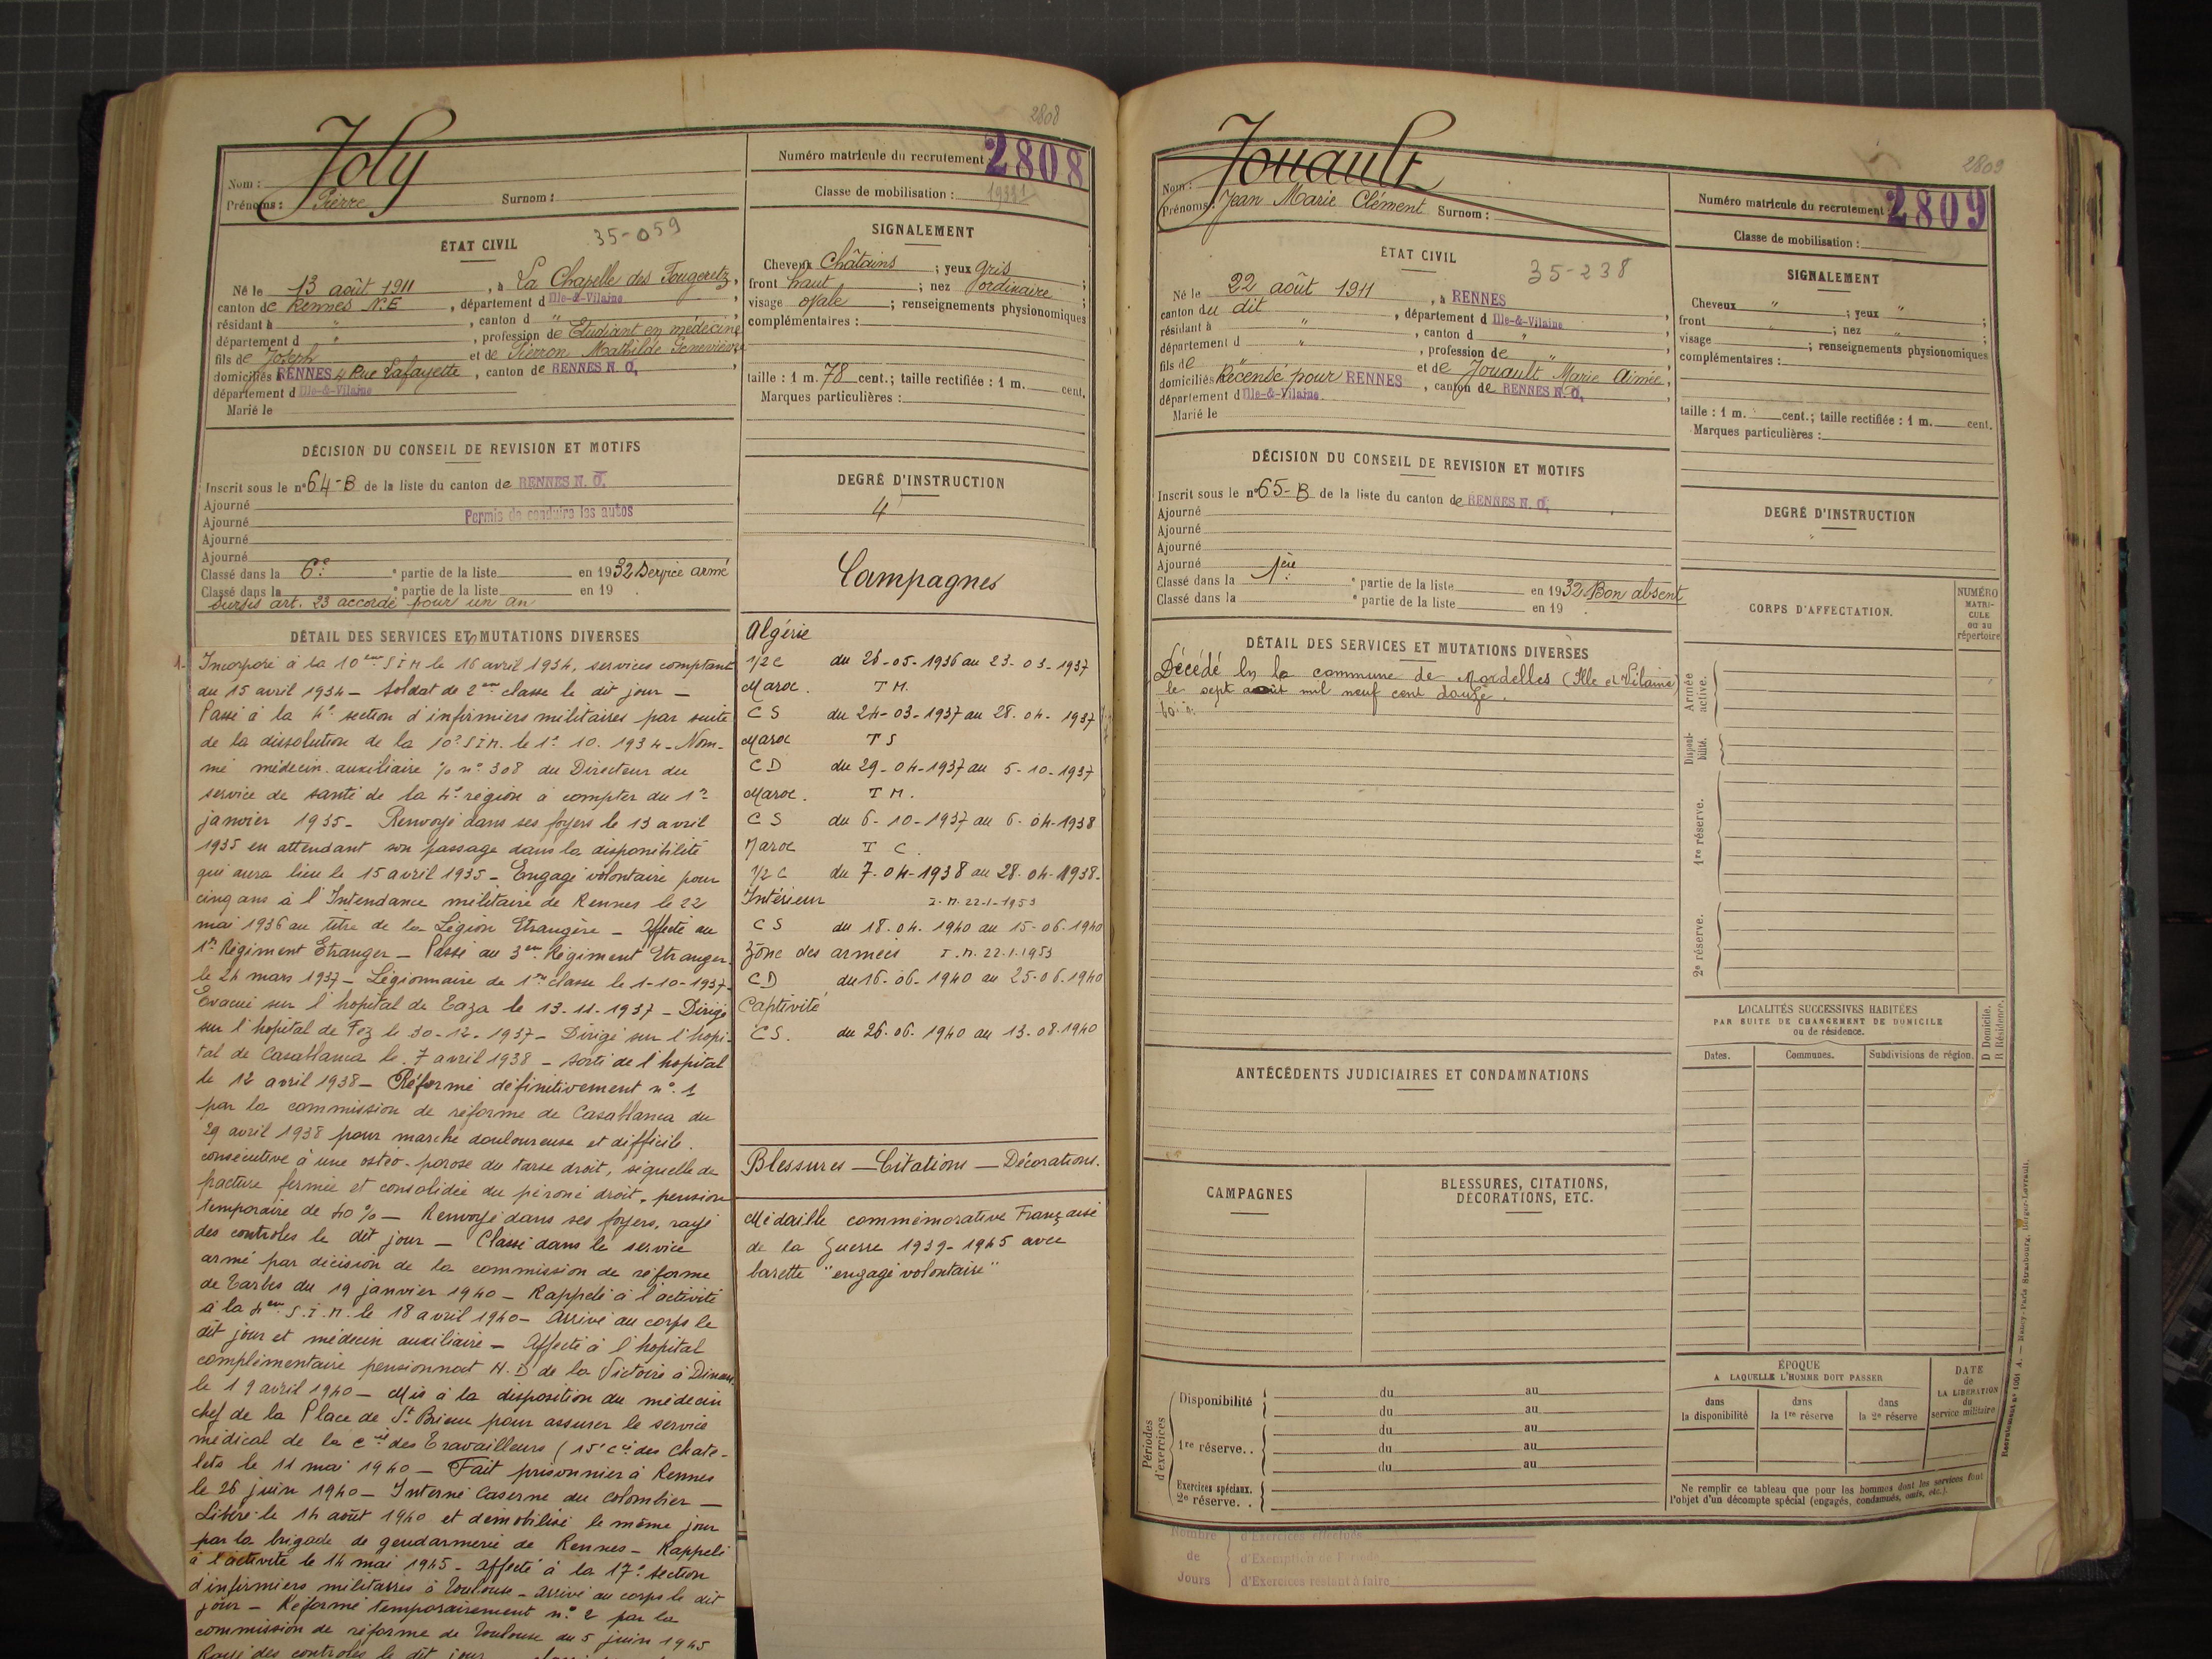 2808
Joly
Nom :
Prénoms : Pierre Surnom :
Numéro matricule du recrutement : 2808
Classe de mobilisation :
35-059
ÉTAT CIVIL
Né le 13 août 1911, à La Chapelle des Fougeretz,
canton de Rennes N.E, département d Ille-&-Vilaine,
résidant à ", canton d "
département d ", profession de Etudiant en médecine
fils de Joseph et de Pierron Mathilde Geneviève
domiciliés à RENNES 4 Rue Lafayette, canton de RENNES N. O,
département d Ille-&-Vilaine
Marié le
SIGNALEMENT
Cheveux Châtains ; yeux gris
front haut ; nez ordinaire ;
visage ovale ; renseignements physionomiques
complémentaires :
taille : 1 m. 78 cent.; taille rectifiée : 1 m. cent.
Marques particulières :
DÉCISION DU CONSEIL DE REVISION ET MOTIFS
Inscrit sous le n° 64-B de la liste du canton de RENNES N. O.
Ajourné
Ajourné Permis de conduire les autos
Ajourné
Ajourné
Classé dans la 6e ° partie de la liste en 1932 Service armé
Classé dans la ° partie de la liste en 19 .
Sursis art. 23 accordé pour un an
DEGRÉ D'INSTRUCTION
4
DÉTAIL DES SERVICES ET MUTATIONS DIVERSES
1. Incorporé à la 10eme S I M le 16 avril 1934, services comptant
du 15 avril 1934 - Soldat de 2eme classe le dit jour -
Passé à la 4e section d'infirmiers militaires par suite
de la dissolution de la 10e S I M. le 1e 10. 1934 - Nom-
mé médecin auxiliaire % n° 308 du Directeur du
service de santé de la 4e région à compter du 1er
janvier 1935 - Renvoyé dans ses foyers le 13 avril
1935 en attendant son passage dans la disponibilité
qui aura lieu le 15 avril 1935 - Engagé volontaire pour
cinq ans à l'Intendance militaire de Rennes le 22
mai 1936 au titre de la Légion Etrangère - Affecté au
1er Régiment Etranger - Passé au 3em Régiment Etranger
le 24 mars 1937 - Légionnaire de 1re classe le 1-10-1937-
Evacué sur l'hopital de Taza le 13-11-1937 - Dirigé
sur l'hopital de Fez le 30-12-1937 - Dirigé sur l'hopi-
tal de Casablanca le 7 avril 1938 - Sorti de l'hopital
le 12 avril 1938 - Réformé définitivement n° 1
par la commission de réforme de Casablanca du
29 avril 1938 pour marche douloureuse et difficile.
consécutive à une ostéo-porose du tarse droit, séquelle de
fracture fermée et consolidée du péroné droit, pension
temporaire de 40% - Renvoyé dans ses foyers, rayé
des controles le dit jour - Classé dans le service
armé par décision de la commission de réforme
de Tarbes du 19 janvier 1940 - Rappelé à l'activité
à la 4em S.I.M. le 18 avril 1940 - Arrivé au corps le
dit jour et médecin auxiliaire - Affecté à l'hopital
complémentaire pensionnat N.D de la Victoire à Dinan
le 19 avril 1940 - Mis à la disposition du médecin
chef de la Place de St Brieuc pour assurer le service
médical de la cie des Travailleurs (15e cie des Chate-
lets le 11 mai 1940 - Fait prisonnier à Rennes
le 26 juin 1940 - Interné Caserne du Colombier -
Libéré le 14 août 1940 et démobilisé le même jour
par la brigade de gendarmerie de Rennes - Rappelé
à l'activité le 14 mai 1945 - Affecté à la 17e section
d'infirmiers militaires à Toulouse - Arrivé au corps le dit
jour - Réformé temporairement n° 2 par la
commission de réforme de Toulouse du 5 juin 1945
Rayé des controles le dit jour
Campagnes
Algérie
1/2 C du 26-05-1936 au 23-03-1937
Maroc. T M.
C S du 24-03-1937 au 28.04-1937
Maroc T S
C D du 29-04-1937 au 5-10-1937
Maroc. T M.
C S du 6-10-1937 au 6-04-1938
Maroc T C.
1/2 C du 7-04-1938 au 28.04-1938-
Intérieur I.M. 22-1-1953
C S du 18.04.1940 au 15-06.1940
Zône des armées I.M. 22.1.1953
C D du 16.06.1940 au 25-06.1940
Captivité
C S. du 26.06.1940 au 13.08.1940
Blessures - Citations - Décorations.
Médaille commémorative Française
de la Guerre 1939-1945 avec
barette "engagé volontaire"
2809
Jouault
Nom :
Prénoms : Jean Marie Clément Surnom :
Numéro matricule du recrutement : 2809
Classe de mobilisation :
ÉTAT CIVIL
35-238
Né le 22 août 1911, à RENNES
canton du dit, département d Ille-&-Vilaine,
résidant à ", canton d "
département d ", profession de "
fils de et de Jouault Marie Aimée,
domiciliés Recensé pour RENNES, canton de RENNES N. O,
département d Ille-&-Vilaine
Marié le
SIGNALEMENT
Cheveux " ; yeux " ;
front " ; nez " ;
visage ; renseignements physionomiques
complémentaires :
taille : 1 m. cent.; taille rectifiée : 1 m. cent.
Marques particulières :
DÉCISION DU CONSEIL DE REVISION ET MOTIFS
Inscrit sous le n° 65-B de la liste du canton de RENNES N. O,
Ajourné
Ajourné
Ajourné
Ajourné
Classé dans la 1ère ° partie de la liste en 1932 Bon absent
Classé dans la ° partie de la liste en 19 .
DEGRÉ D'INSTRUCTION
"
DÉTAIL DES SERVICES ET MUTATIONS DIVERSES
Décédé en la commune de Mordelles (Ille et Vilaine)
le sept août mil neuf cent douze.
CORPS D'AFFECTATION.
NUMÉRO
MATRI-
CULE
ou au
répertoire
Armée
active.
Disponi-
bilité.
1re réserve.
2e réserve.
LOCALITÉS SUCCESSIVES HABITÉES
PAR SUITE DE CHANGEMENT DE DOMICILE
ou de résidence.
D Domicile.
R Résidence.
Dates. Communes. Subdivisions de région.
ANTÉCÉDENTS JUDICIAIRES ET CONDAMNATIONS
CAMPAGNES
BLESSURES, CITATIONS,
DÉCORATIONS, ETC.
Périodes
d'exercices
Disponibilité du au
du au
1re réserve.. du au
du au
Exercices spéciaux.
2e réserve. .
ÉPOQUE
A LAQUELLE L'HOMME DOIT PASSER
dans
la disponibilité
dans
la 1re réserve
dans
la 2e réserve
DATE
de
LA LIBÉRATION
du
service militaire
Ne remplir ce tableau que pour les hommes dont les services font
l'objet d'un décompte spécial (engagés, condamnés, omis, etc.).
Nombre d'Exercices effectués
de d'Exemption de Période
Jours d'Exercices restant à faire
Recrutement n° 1061 A. — Nancy-Paris-Strasbourg, Berger-Levrault.